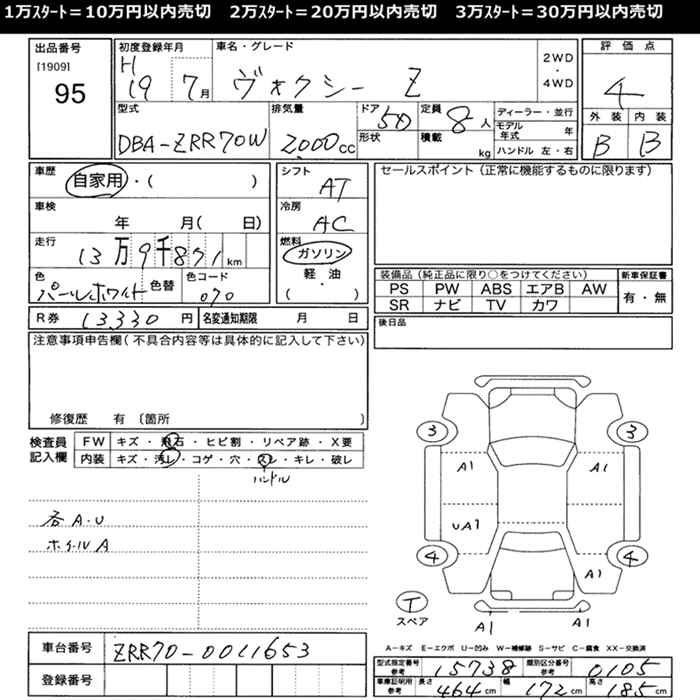 1万スタート＝10万円以内売切　2万スタート＝20万円以内売切　3万スタート＝30万円以内売切
出品番号
[1909]
95
初度登録年月
H19 7月
車名・グレード
ヴォクシー Z
2WD
・
4WD
評価点
4
外装 内装
B B
型式
DBA-ZRR70W
排気量
2000cc
ドア 5D
形状
定員 8人
積載 kg
ディーラー・並行
モデル年式 年
ハンドル 左・右
車歴
自家用・( )
車検
年 月( 日)
走行
13万9千871km
色
パールホワイト
色替
色コード
070
シフト
AT
冷房
AC
燃料
ガソリン
軽・油
( ・ )
セールスポイント（正常に機能するものに限ります）
装備品（純正品に限り○をつけてください）
PS PW ABS エアB AW
SR ナビ TV カワ
新車保証書
有・無
R券 13,330円
名変通知期限 月 日
後日品
注意事項申告欄(不具合内容等は具体的に記入して下さい)
修復歴 有〔箇所 〕
検査員
記入欄
FW キズ・飛石・ヒビ割・リペア跡・X要
内装 キズ・汚レ・コゲ・穴・スレ・キレ・破レ
ハンドル
各A.U
ホイールA
3 3
A1 A1
UA1
4 4
A1
T
スペア
A1 A1
A－キズ E－エクボ U－凹み W－補修跡 S－サビ C－腐食 XX－交換済
車台番号 ZRR70-0011653
登録番号
型式指定番号
参考
15738
類別区分番号
参考
0105
車庫証明用
参考
長さ 464cm 幅 172cm 高さ 185cm